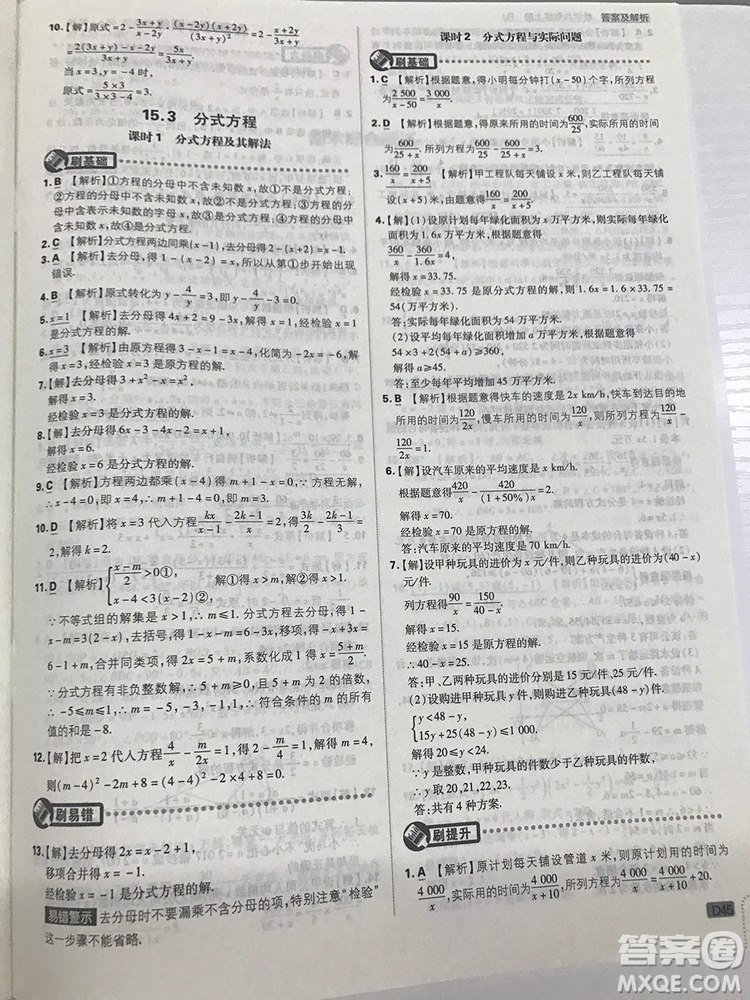 答案及解析
10.【解】原式 = 2 - 3x+y/x-y · (x-y)²/(3x+y)² = 2 - x-y/3x+y =
2(3x+y)-(x-y)/3x+y
当 x=3, y=-4时,
原式 = 5×3/3×3-4 = 3.
15.3 分式方程
课时1 分式方程及其解法
刷基础
1. B 【解析】①方程的分母中不含未知数 x,故①不是分式方程;
②方程的分母中不含未知数 x,故②不是分式方程;③方程的分
母中含未知数字母 x,故③是分式方程;④方程的分母中含未知
数 x,故④是分式方程.
2. C 【解析】分式方程两边同乘(x-1),去分母得 2-(x+2)
3. A 【解析】去分母,得
所以从第①步开始出现
错误.
4. B 【解析】原式转化为 y - 4/y = 3,即 y - 4/y - 3=0.
5. x=1 【解析】去分母得 4x+2=9-3x,解得 x=1,经检验 x=1
是分式方程的解.
6. x=3 【解析】由原方程得 3-x-1=x-4,
经检验
7.【解】去分母得 3+x²-x=x²,
解得 x=3.
经检验 x=3 是分式方程的解.
8.【解】去分母得 6x-3-4x-2=x+1,
解得 x=6.
经检验 x=6 是分式方程的解.
9. C 【解析】方程两边都乘(x-4)得 m+1-x=0,∵方程无解,
∴x-4=0,即 x=4,∴4-1-m=0,即 m=3.
10. D 【解析】将 x=3 代入方程 kx/x-1 - 2k-1/x = 2,得 3k/3-1 - 2k-1/3 = 2,
解得 k=2.
11. D 【解析】{x-m/2>0①, x-4<3(x-2)②,解①得 x>m,解②得 x>1,
∵不等式组的解集是 x>1,∴m≤1.分式方程去分母,得
1-x-m=3(2-x),去括号,得 1-x-m=6-3x,移项,得 -x+3x=
6-1+m,合并同类项,得 2x=5+m,系数化成1得 x=5+m/2.
∵分式方程有非负整数解,∴5+m≥0 且 5+m 为 2 的倍数,
∴-5≤m≤1.∴m=-5,-3,-1,1,
∴符合条件的m的所有
值的和是 -8.
12.【解】把 x=2 代入方程 4/x - m-x/x-4 = m/4
解得 m=4,
则(m-4)²-2m+8=(4-4)²-2×4+8=0.
刷易错
13.【解】去分母得 2x=x-2+1,
移项合并得 x=-1.
经检验 x=-1 是分式方程的解.
易错警示 去分母时不要漏乘不含分母的项,特别注意“检验”
这一步骤不能省略.
课时2 分式方程与实际问题
刷基础
1. C 【解析】根据题意,得小明每分钟打(x-50)个字,所列方程
为 2 500/x-50 = 3 000/x.
2. D 【解析】根据题意,得原来所用的时间为 600/x,实际所用的
时间为 600/x+25,所列方程为 600/x+25 =
3. 160/x = 200/x+5 【解析】甲工程队每天铺设 x 米,则乙工程队每天铺
设(x+5)米,由题意得 160/x = 200/x+5.
4.【解】(1)设原计划每年绿化面积为 x 万平方米,则实际每年绿化
面积为 1.6x 万平方米,根据题意,得
360/x - 360/1.6x = 4.
解得 x=33.75.
经检验 x=33.75 是原分式方程的解,则 1.6x=1.6×33.75=
54(万平方米).
答:实际每年绿化面积为 54 万平方米.
(2)设平均每年绿化面积增加 a 万平方米,根据题意得
54×3+2(54+a)≥360,
解得 a≥45.
答:至少每年平均增加 45 万平方米.
5. B 【解析】根据题意得快车的速度是 2x km/h,快车到达目的地
所用的时间为 120/2x,慢车所用时间为 120/x,则所列方程为 120/x -
120/2x = 1.
6.【解】设汽车原来的平均速度是 x km/h.
根据题意得 420/x - 420/(1+50%)x = 2,
解得 x=70,
经检验 x=70 是原方程的解.
答:汽车原来的平均速度是 70 km/h.
7.【解】(1)设甲种玩具的进价为 x 元/件,则乙种玩具的进价为(40-x)
元/件,
列方程得 90/x = 150/40-x,
解得 x=15.
经检验 x=15 是原方程的解.
∴40-x=25.
答:甲、乙两种玩具的进价分别是 15 元/件,25 元/件.
(2)设购进甲种玩具 y 件,则购进乙种玩具(48-y)件,由题意得
{y<48-y, 15y+25(48-y)≤1 000,
解得 20≤y<24.
∵y 是整数,甲种玩具的件数少于乙种玩具的件数,
∴y 取 20,21,22,23.
答:共有 4 种方案.
刷提升
1. A 【解析】原计划每天铺设管道 x 米,则原计划用的时间为
4 000/x,实际用的时间为 4 000/x+10,方程为 4 000/x = 4 000/x+10 + 20.
D45
答案圈
MXQE.COM